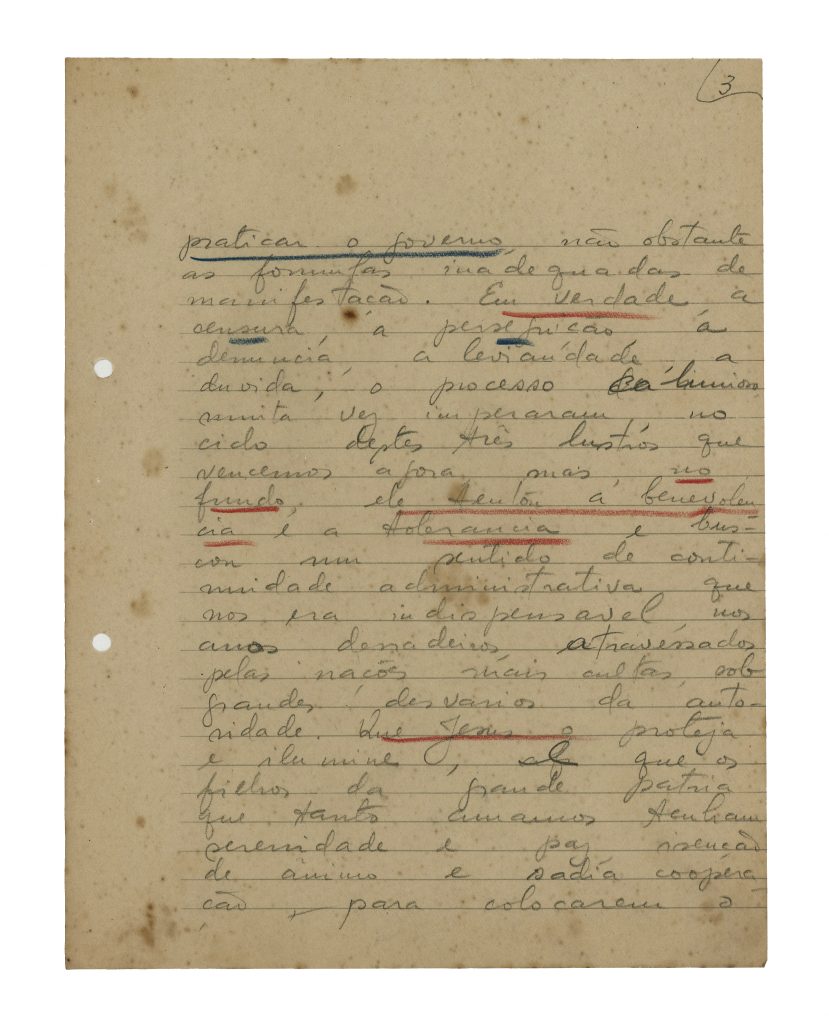 3
praticar o governo, não obstante
as formulas inadequadas de
manifestação. Em verdade a
censura, á perseguicão á
denuncia, a leviandade, a
duvida, o processo calunioso
muita vez imperaram, no
ciclo destes três lustros que
vencemos agora, mas, no
fundo, ele tentou á benevolen
cia é a tolerancia e bus-
cou um sentido de conti-
nuidade administrativa que
nos era indispensavel nos
anos derradeiros atravessados
pelas nações mais cultas, sob
grandes desvarios da auto-
ridade. Que Jesus o proteja
e ilumine, e que os
filhos da grande patria
que tanto amamos tenham
serenidade e paz isencão
de ânimo e sadía coopéra
cão, para colocarem o